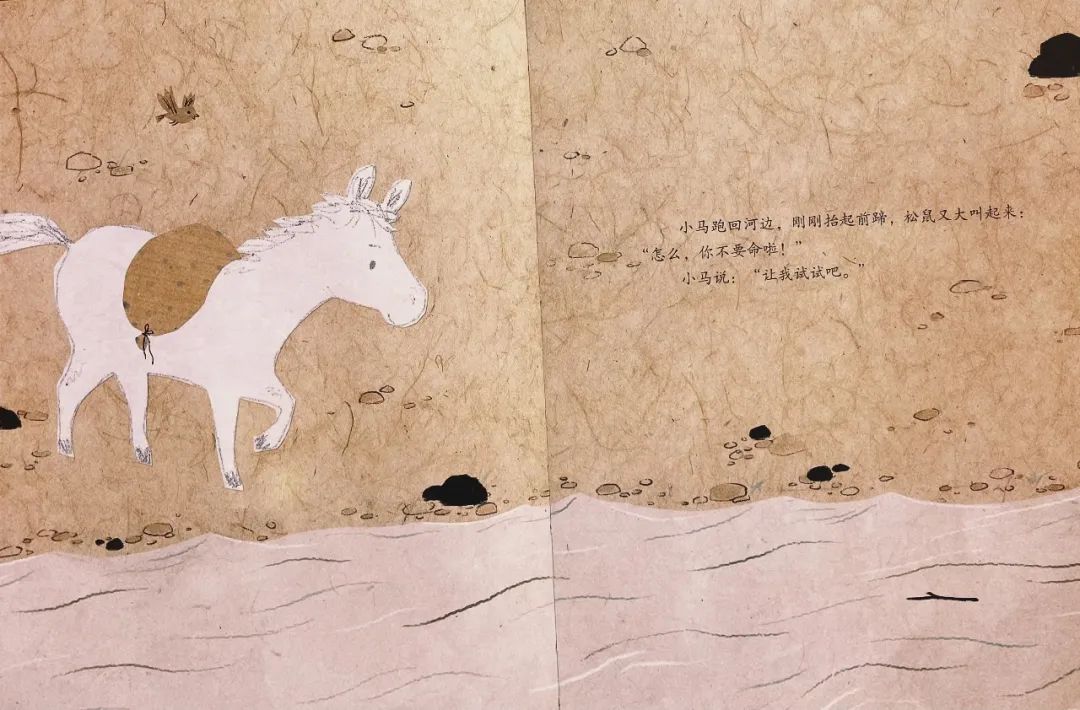 小马跑回河边，刚刚抬起前蹄，松鼠又大叫起来：
“怎么，你不要命啦！”
小马说：“让我试试吧。”